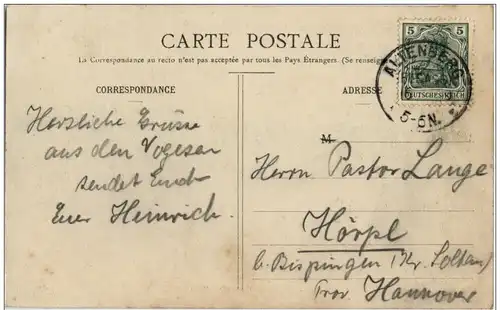 CARTE POSTALE
La Correspondance au recto n'est pas acceptée par tous les Pays Étrangers. (Se renseign
CORRESPONDANCE
ADRESSE
5 5
DEUTSCHES REICH
ALTENBERG
5-6N.
M
Herzliche Grüsse
aus den Vogesen
sendet Euch
Euer Heinrich.
Herrn Pastor Lange
Hörpl
b. Bispingen (Kr. Soltau)
Prov. Hannover